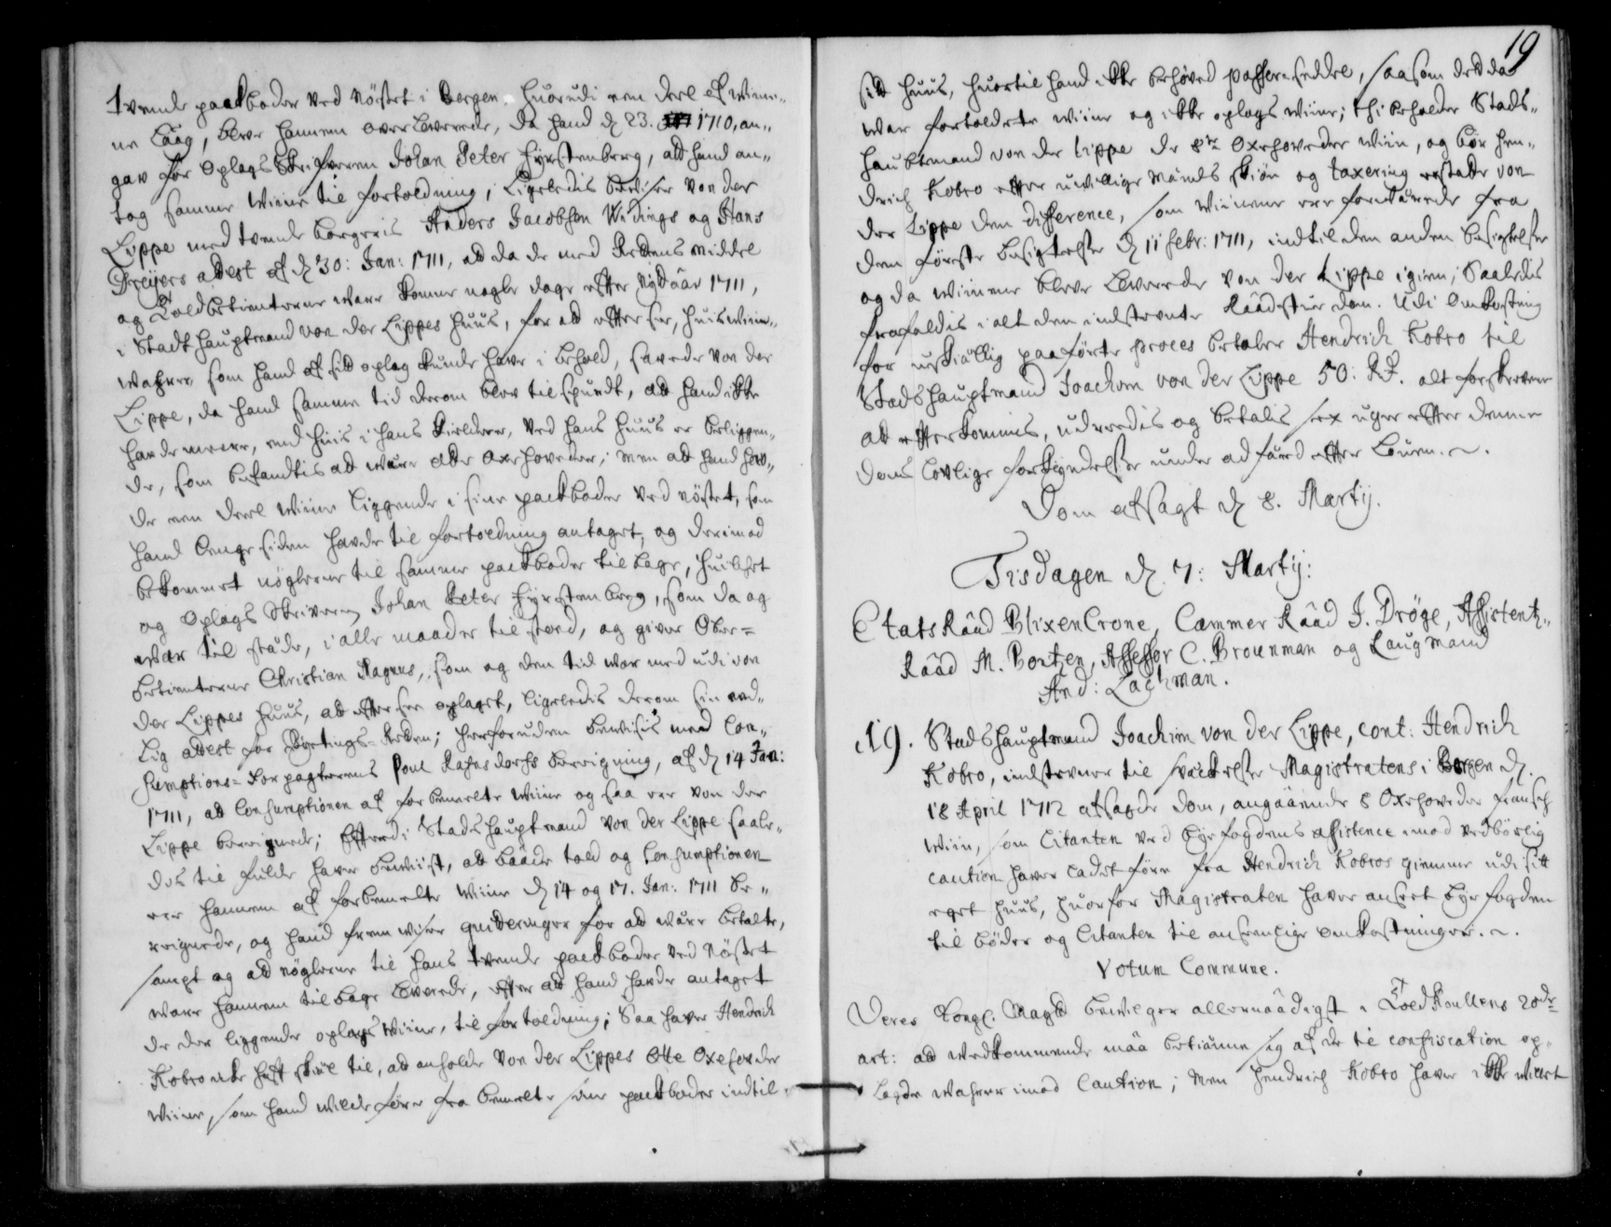 tvende pakboder ved Nöstet i Bergen, huorudi een deel af wine,,
ne laag, bleve hannem overleverede, da hand d. 23. 1710, an,,
gav for oplags Skriferen Johan Peter Hyrstenberg, at hand an,,
tog samme wiine til fortoldning, ligeledis beviser von der
Lippe med tvende borgeris Anders Jacobsen Widings og Hans
Dreyers attest af d. 30: Jan: 1711, at da de med Rettens middel
og Toldbetienterne vare komne nogle dage efter Nÿtaar 1711,
i Stadthauptmand von der Lippes huus, for at efter see, huis wiin,,
wahrer som hand af sit oplag kunde have i behold, svarede von der
Lippe, da hand samme tid derom blev til spurdt, at hand ikke
hafde meere, end huis i hans kieldere, ved hans huus er beliggen,,
de, som befandtis at være otte Oxehoveder; men at hand hav,,
de een deel wiine liggende i sine pakboder ved nöstet, som
hand lenge siden havde til fortoldning antaget, og derimod
bekommet nöglerne til samme pakboder tilbage, huilchet
og oplags Skriveren Johan Peter Hyrstenberg, som da og
var til stæde, i alle maader tilstoed, og giver Ober=
betienterne Christian Magnus, som og den tid var med udi von
der Lippes huus, at efter see oplaget, ligeledis derom sin eed,,
lig attest for Byetings-Retten; herforuden bevisis med Con,,
sumptions-Forpagterens Poul Rasnsdorfs beregning, af d. 14 Jan:
1711, at Consumptionen af forbemelte wiine og saa er von der
Lippe beregnede; Efterdi Stadshauptmand von der Lippe saale,,
des til fulde haver beviist, at baade told og Consumptionen
er hannem af forbemelte wiine d. 14 og 17. Jan: 1711 be,,
reignede, og hand fremviser quitteringer for at være betalte,
sampt og at nöglerne til hans tvende pakboder ved Nöstet
vare hannem tilbage leverede, efter at hand havde antaget
de der liggende oplags wiine, til fortoldning; Saa haver Hendrich
Kobro icke haft skiel til, at anholde von der Lippes Otte Oxehoveder
wiine, som hand wilde före fra bemelte sine pakboder indtil
19
sit huus, huortil hand ikke behöved passeerseddel, saasom det da
war fortoldete wiine og ikke oplags wiine; thi beholder Stads,,
hauptmand von der Lippe de 8te Oxehoveder wiin, og bör Hen,,
drich Kobro efter uvillige Mænds skiön og taxering erstatte von
der Lippe den difference, som wiinene ere forværrede fra
den förste besigtelse d. 11 Febr: 1711, indtil den anden besigtelse
og da wiinene bleve leverede von der Lippe igien; Saaledis
frafaldis i alt den indstevnte Raadstue dom. Udi Omkostning
for uskiællig paaförte proces betaler Hendrich Kobro til
Stadshauptmand Joachim von der Lippe 50: Rd. alt forskrevne
at efterkommis, udreedis og betalis sex uger efter denne
doms lovlige forkyndelse under adfærd efter Loven.
Dom afsagt d. 8. Martij.
Tisdagen d. 7: Martij:
EtatsRaad BlixenCrone, CammerRaad J. Dröge, Assistentz,,
Raad M. Bortzen, Assessor C. Brounman og Laugmand
And: Lachman.
N19. Stadshauptmand Joachim von der Lippe, cont: Hendrich
Kobro, indstevner til svækkelse Magistratens i Bergen d.
18 April 1712 afsagde dom, angaaende 8 Oxehoveder fransch
wiin, som Citanten ved Byefogdens assistence imod vedbörlig
caution haver ladet före fra Hendrich Kobros giemme udi sit
eget huus, huorfor Magistraten haver anseet Byefogden
til böder og Citanten til ansenlige omkostninger.
Votum Commune.
Deres Kongl. Mayt bevilger allernaadigst i Toldroullens 20de
art: at vedkommende maa betiene sig af de til confiscation op,,
lagde wahrer imod Caution; Men Hendrich Kobro haver ikke villet